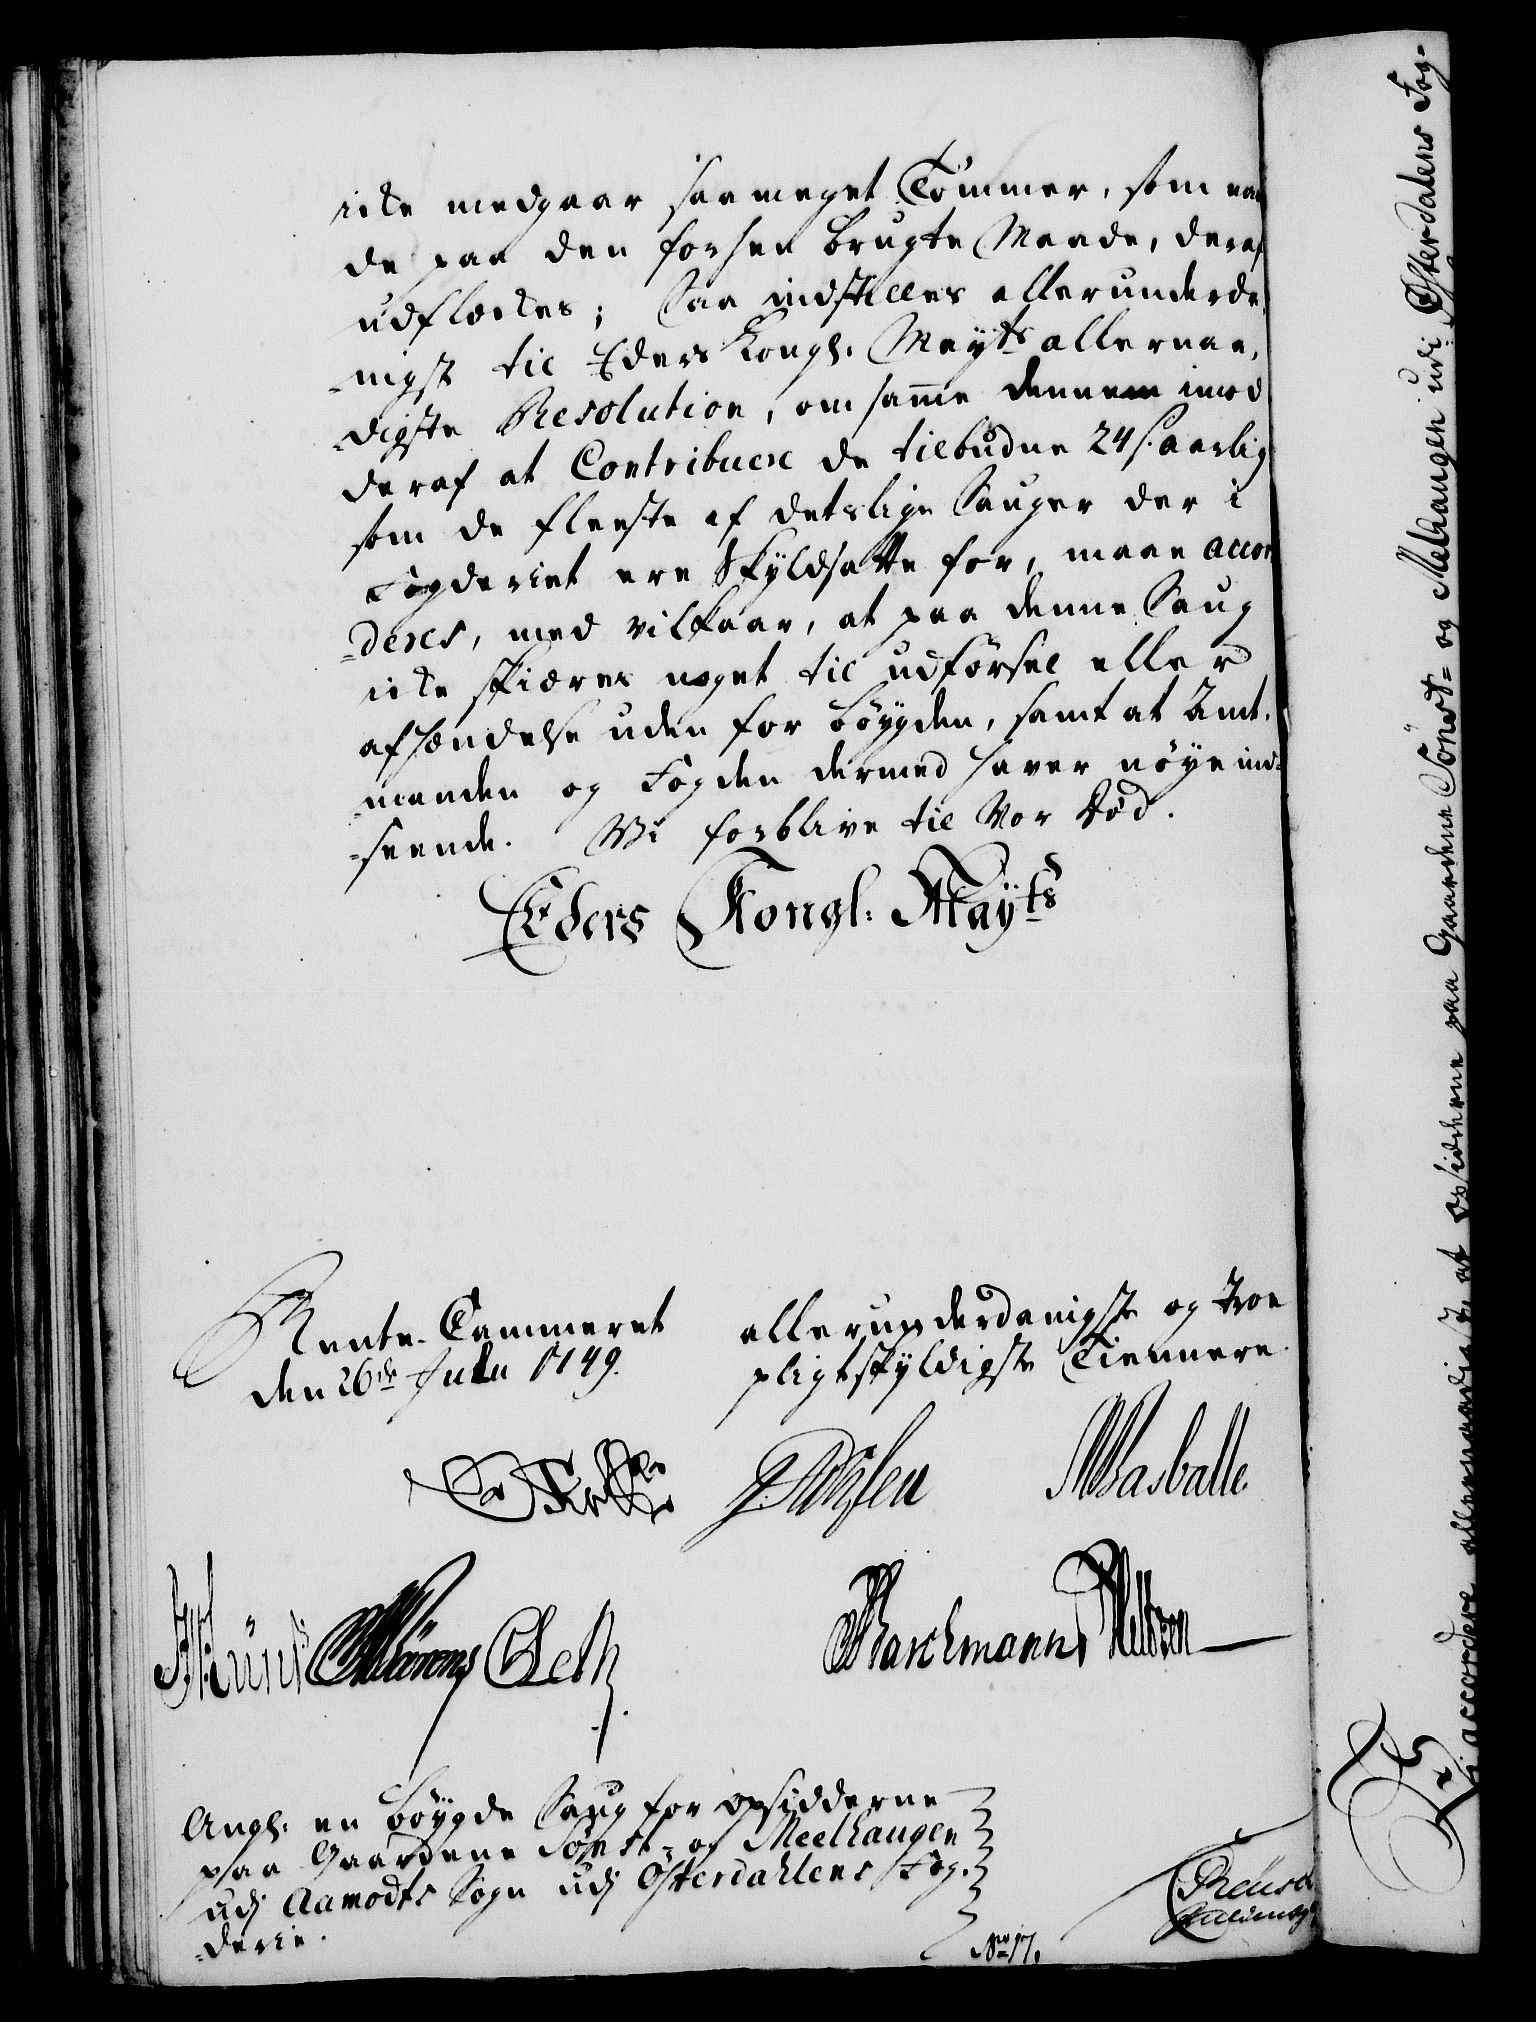 icke medgaar saa meget Tømmer, som naar
de paa den forhen brugte Maade, deraf
udflækkes; Saa indstilles allerunderda-
-nigst til Eders Kongl. Mayts allernaa-
-digste Resolution, om samme dennem imod
deraf at Contribuere de tilbudne 24 s. aarlig
som de fleeste af deslige Sauger der i
Fogderiet ere Skyldsatte for, maae accor
=deres, med vilkaar, at paa denne Saug
icke skiæres noget til udførsel eller
afhændelse uden for Bøygden, samt at Amt-
=manden og Fogden dermed haver nøye ind-
=seende. Wi forblive til Vor Død.
Eders Kongl: Mayts
Rente-Cammeret
den 26de Julii 1749.
allerunderdanigste og troe
pligtskyldigste Tiennere.
Rasballe
Barchmann
Angl. en Bøygde Saug for opsidderne
paa Gaardene Sønst- og Meelhaugen
udj Aamodts Sogn udj Østerdahlens Fog-
=derie.
No 17.
Vi accordere allernaadigst, at opsidderne paa Gaardene Sønst- og Melhaugen udi Østerdalens Fog-